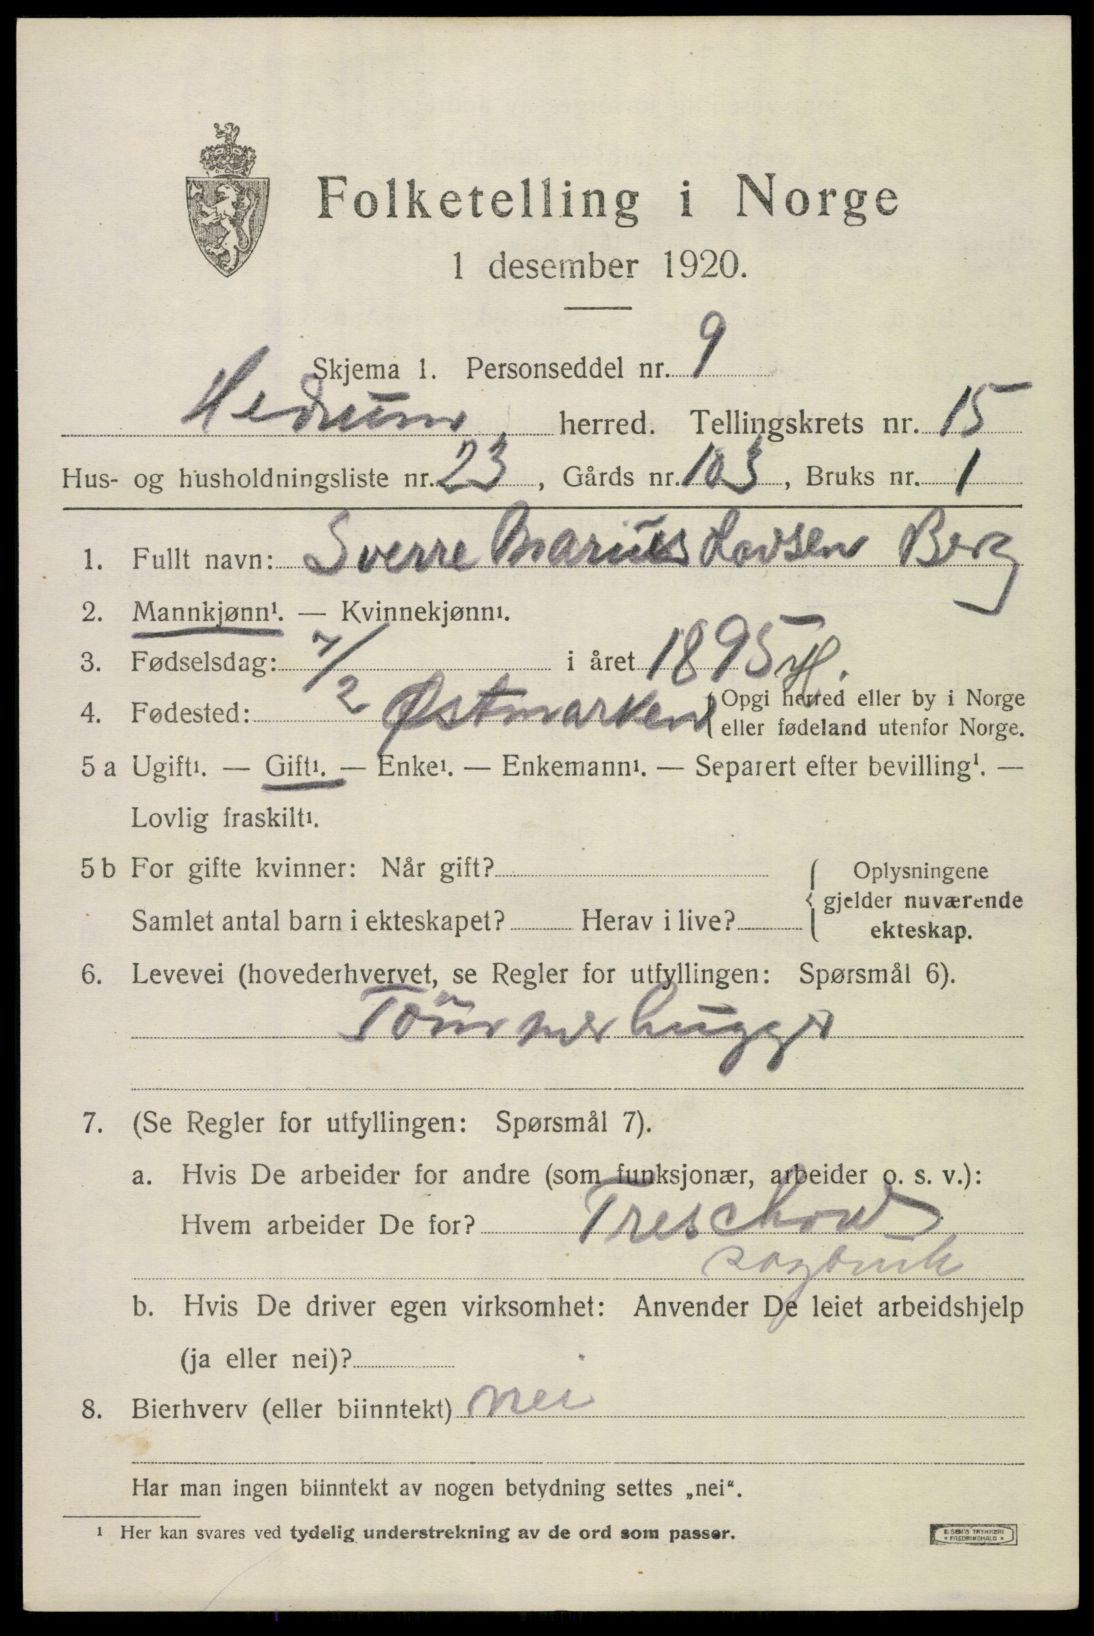 Folketelling i Norge
1 desember 1920.
Skjema 1. Personseddel nr. 9
Hedrum herred. Tellingskrets nr. 15
Hus- og husholdningsliste nr. 23, Gårds nr. 103, Bruks nr. 1
1. Fullt navn: Sverre Marius Berg
2. Mannkjønn¹. — Kvinnekjønn¹.
3. Fødselsdag: 7/2 i året 1895
4. Fødested: Østmarken { Opgi herred eller by i Norge
eller fødeland utenfor Norge.
5 a Ugift¹. — Gift¹. — Enke¹. — Enkemann¹. — Separert efter bevilling¹. —
Lovlig fraskilt¹.
5 b For gifte kvinner: Når gift?
Samlet antal barn i ekteskapet? Herav i live?
{ Oplysningene
gjelder nuværende
ekteskap.
6. Levevei (hovederhvervet, se Regler for utfyllingen: Spørsmål 6).
Tömmerhugger
7. (Se Regler for utfyllingen: Spørsmål 7).
a. Hvis De arbeider for andre (som funksjonær, arbeider o. s. v.):
Hvem arbeider De for? Treschow
sagbruk
b. Hvis De driver egen virksomhet: Anvender De leiet arbeidshjelp
(ja eller nei)?
8. Bierhverv (eller biinntekt) nei
Har man ingen biinntekt av nogen betydning settes „nei“.
¹ Her kan svares ved tydelig understrekning av de ord som passer.